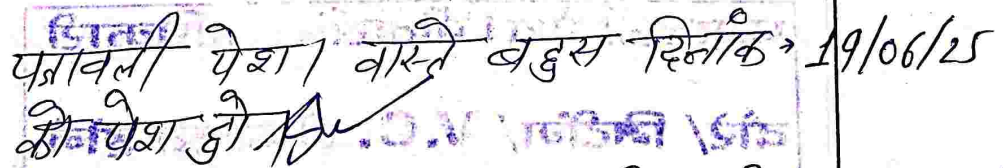 पत्रावली पेश। वास्ते बहस दिनांक 19/06/25
को पेश हो।